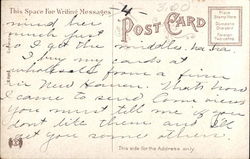 This Space For Writing Messages
4
3.00
POST CARD
Place
Stamp
Here
Domestic
One Cent
Foreign
Two cents
mind her
much just
so I get the middles. ha ha
I buy my cards at
wholesale from a firm
in New Haven. Thats how
I came to send some over
you must tell me if you
don't like them and I'll
get you some others.
This side for the Address only